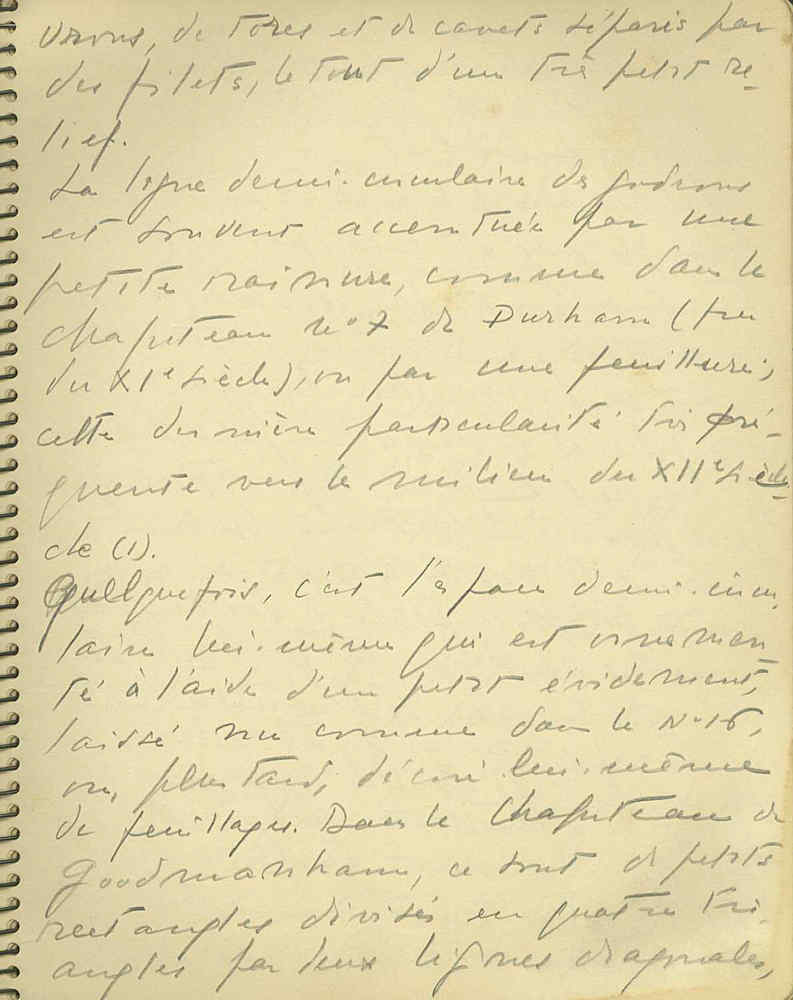 vrons, de tores et de cavets séparés par
des filets, le tout d'un très petit re-
lief.
La ligne demi-circulaire des godrons
est souvent accentuée par une
petite rainure, comme dans le
chapiteau no 7 de Durham (fin
du XIe siècle), ou par une feuillure;
cette dernière particularité très fré-
quente vers le milieu du XIIe siècle
cle (1).
Quelquefois, c'est l'espace demi-circu-
laire lui-même qui est ornemen
té à l'aide d'un petit évidement,
laissé nu comme dans le No 16,
ou, plus tard, décoré lui-même
de feuillages. Dans le chapiteau de
Goodmanham, ce sont de petits
rectangles divisés en quatre tri-
angles par deux lignes diagonales,